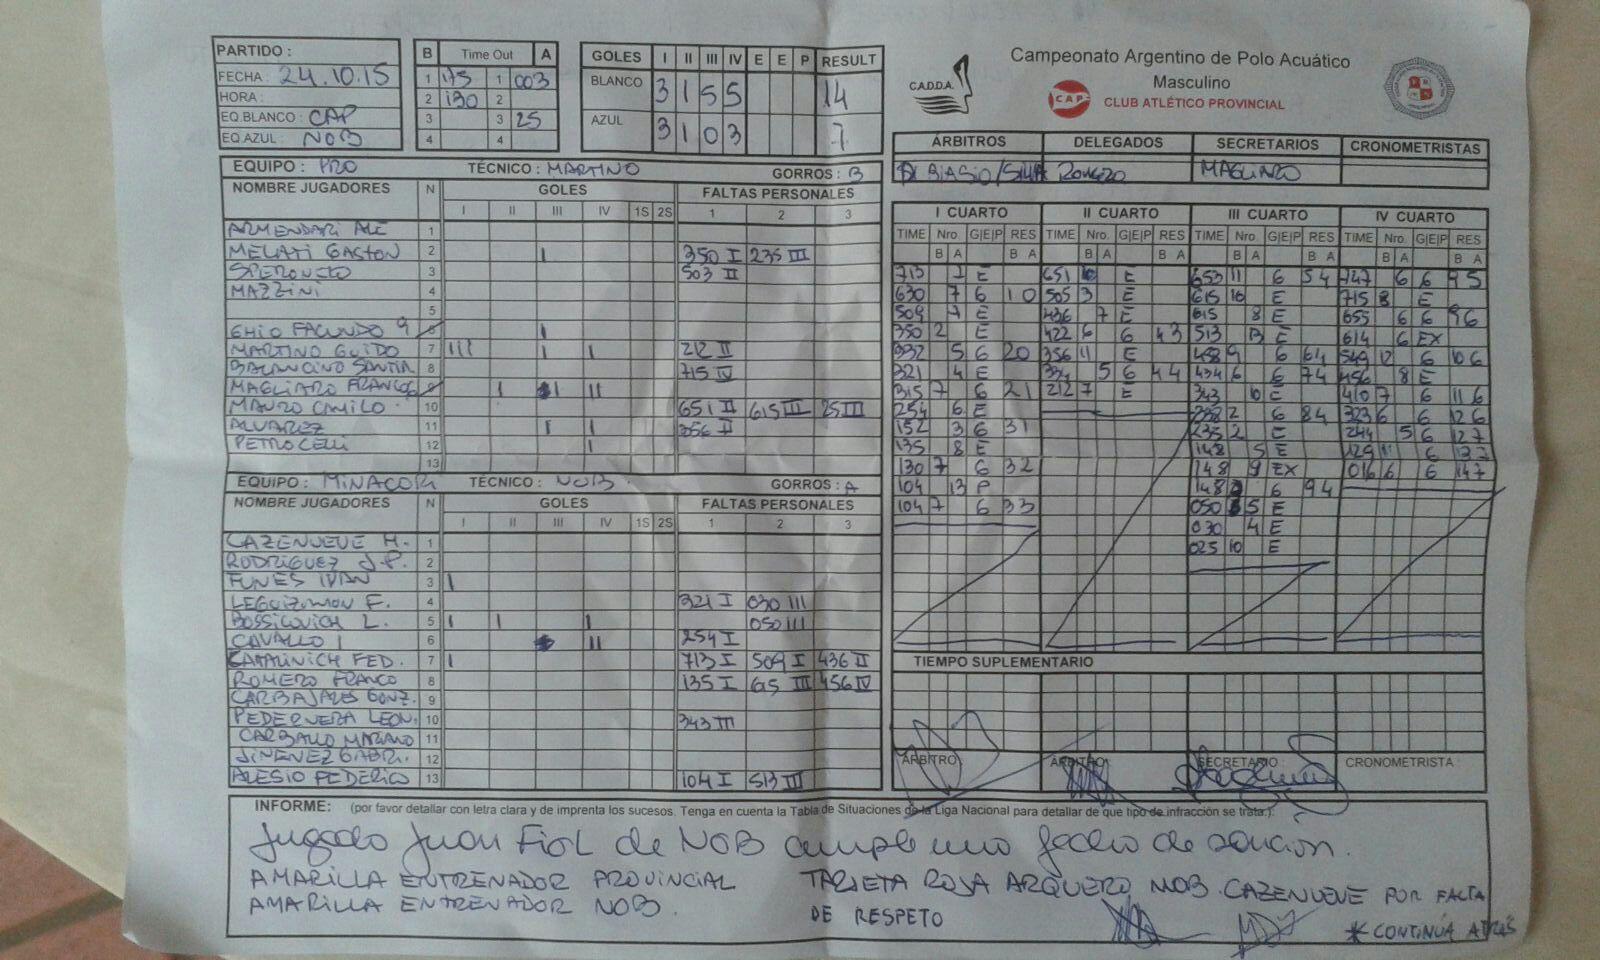 PARTIDO :
FECHA : 24.10.15
HORA :
EQ.BLANCO : CAP
EQ.AZUL : NOB
B Time Out A
1 175 1 003
2 130 2
3 3 25
4 4
GOLES I II III IV E E P RESULT
BLANCO 3 1 5 5 14
AZUL 3 1 0 3 7
C.A.D.D.A.
Campeonato Argentino de Polo Acuático
Masculino
CAP CLUB ATLÉTICO PROVINCIAL
ÁRBITROS DELEGADOS SECRETARIOS CRONOMETRISTAS
DI BIASIO/SILVA MAGLIARO
EQUIPO : PRO TÉCNICO : MARTINO GORROS : B
NOMBRE JUGADORES N GOLES FALTAS PERSONALES
I II III IV 1S 2S 1 2 3
ARMENDARI ALE 1
MELATI GASTON 2 I 350 I 235 III
SPERONCIO 3 503 II
MAZZINI 4
5
GHIO FACUNDO 9 6 I
MARTINO GUIDO 7 III I I 212 II
8 715 IV
MAGLIARO FRANCO 6 9 I II
MAURO CAMILO 10 651 II 615 III 25 III
ALVAREZ 11 I I 356 II
PETROCELLI 12 I
13
EQUIPO : MINACORI TÉCNICO : NOB GORROS : A
NOMBRE JUGADORES N GOLES FALTAS PERSONALES
I II III IV 1S 2S 1 2 3
CAZENUEVE H. 1
RODRIGUEZ J.P. 2
FUNES IVAN 3 I
LEGUIZAMON F. 4 321 I 030 III
BOSSICOVICH L. 5 I I I 050 III
CAVALLO I 6 II 254 I
CATALINICH FED. 7 I 713 I 509 I 436 II
ROMERO FRANCO 8 135 I 615 III 456 IV
CARBAJALES GONZ. 9
PEDERNERA LEON. 10 343 III
CARBALLO MARIANO 11
JIMENEZ GABRI. 12
ALESIO FEDERICO 13 104 I 513 III
I CUARTO II CUARTO III CUARTO IV CUARTO
TIME Nro. G|E|P RES TIME Nro. G|E|P RES TIME Nro. G|E|P RES TIME Nro. G|E|P RES
B A B A B A B A B A B A B A B A
713 7 E 651 10 E 653 11 G 5 4 747 6 G 9 5
630 7 G 1 0 505 3 E 615 10 E 715 8 E
509 7 E 436 7 E 615 8 E 655 6 G 9 6
350 2 E 422 6 G 4 3 513 13 E 614 6 EX
332 5 G 2 0 356 11 E 458 9 G 6 4 549 12 G 10 6
321 4 E 334 5 G 4 4 434 6 G 7 4 456 8 E
315 7 G 2 1 212 7 E 343 10 E 410 7 G 11 6
254 6 E 2 G 8 4 323 6 G 12 6
152 3 G 3 1 235 2 E 244 5 G 12 7
135 8 E 148 5 E 129 11 G 13 7
130 7 G 3 2 148 9 EX 016 6 G 14 7
104 13 P 148 G 9 4
104 7 G 3 3 050 5 E
030 4 E
025 10 E
TIEMPO SUPLEMENTARIO
ÁRBITRO ÁRBITRO SECRETARIO : CRONOMETRISTA :
INFORME: (por favor detallar con letra clara y de imprenta los sucesos. Tenga en cuenta la Tabla de Situaciones de la Liga Nacional para detallar de que tipo de infracción se trata.):
Jugador Juan Fiol de NOB cumple una fecha de sanción.
AMARILLA ENTRENADOR PROVINCIAL TARJETA ROJA ARQUERO NOB. CAZENUEVE POR FALTA
AMARILLA ENTRENADOR NOB. DE RESPETO
* CONTINÚA ATRÁS